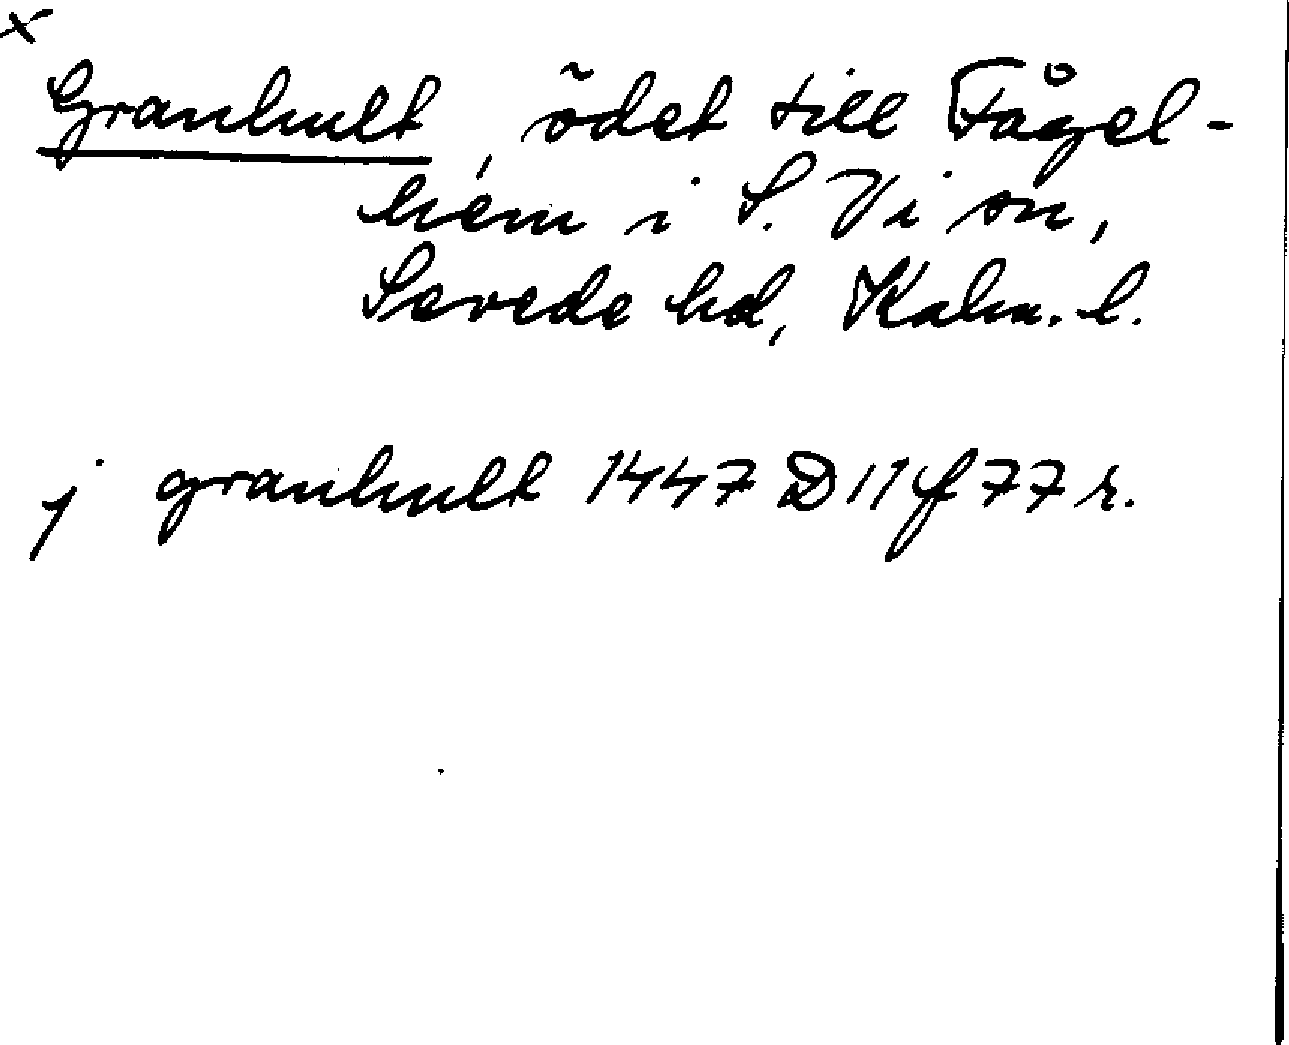 x
Granhult, ödet till Fågel-
hem i S. Vi sn,
Sevede hd, Kalm. l.
j granhult 1447 D 11 f 77 r.